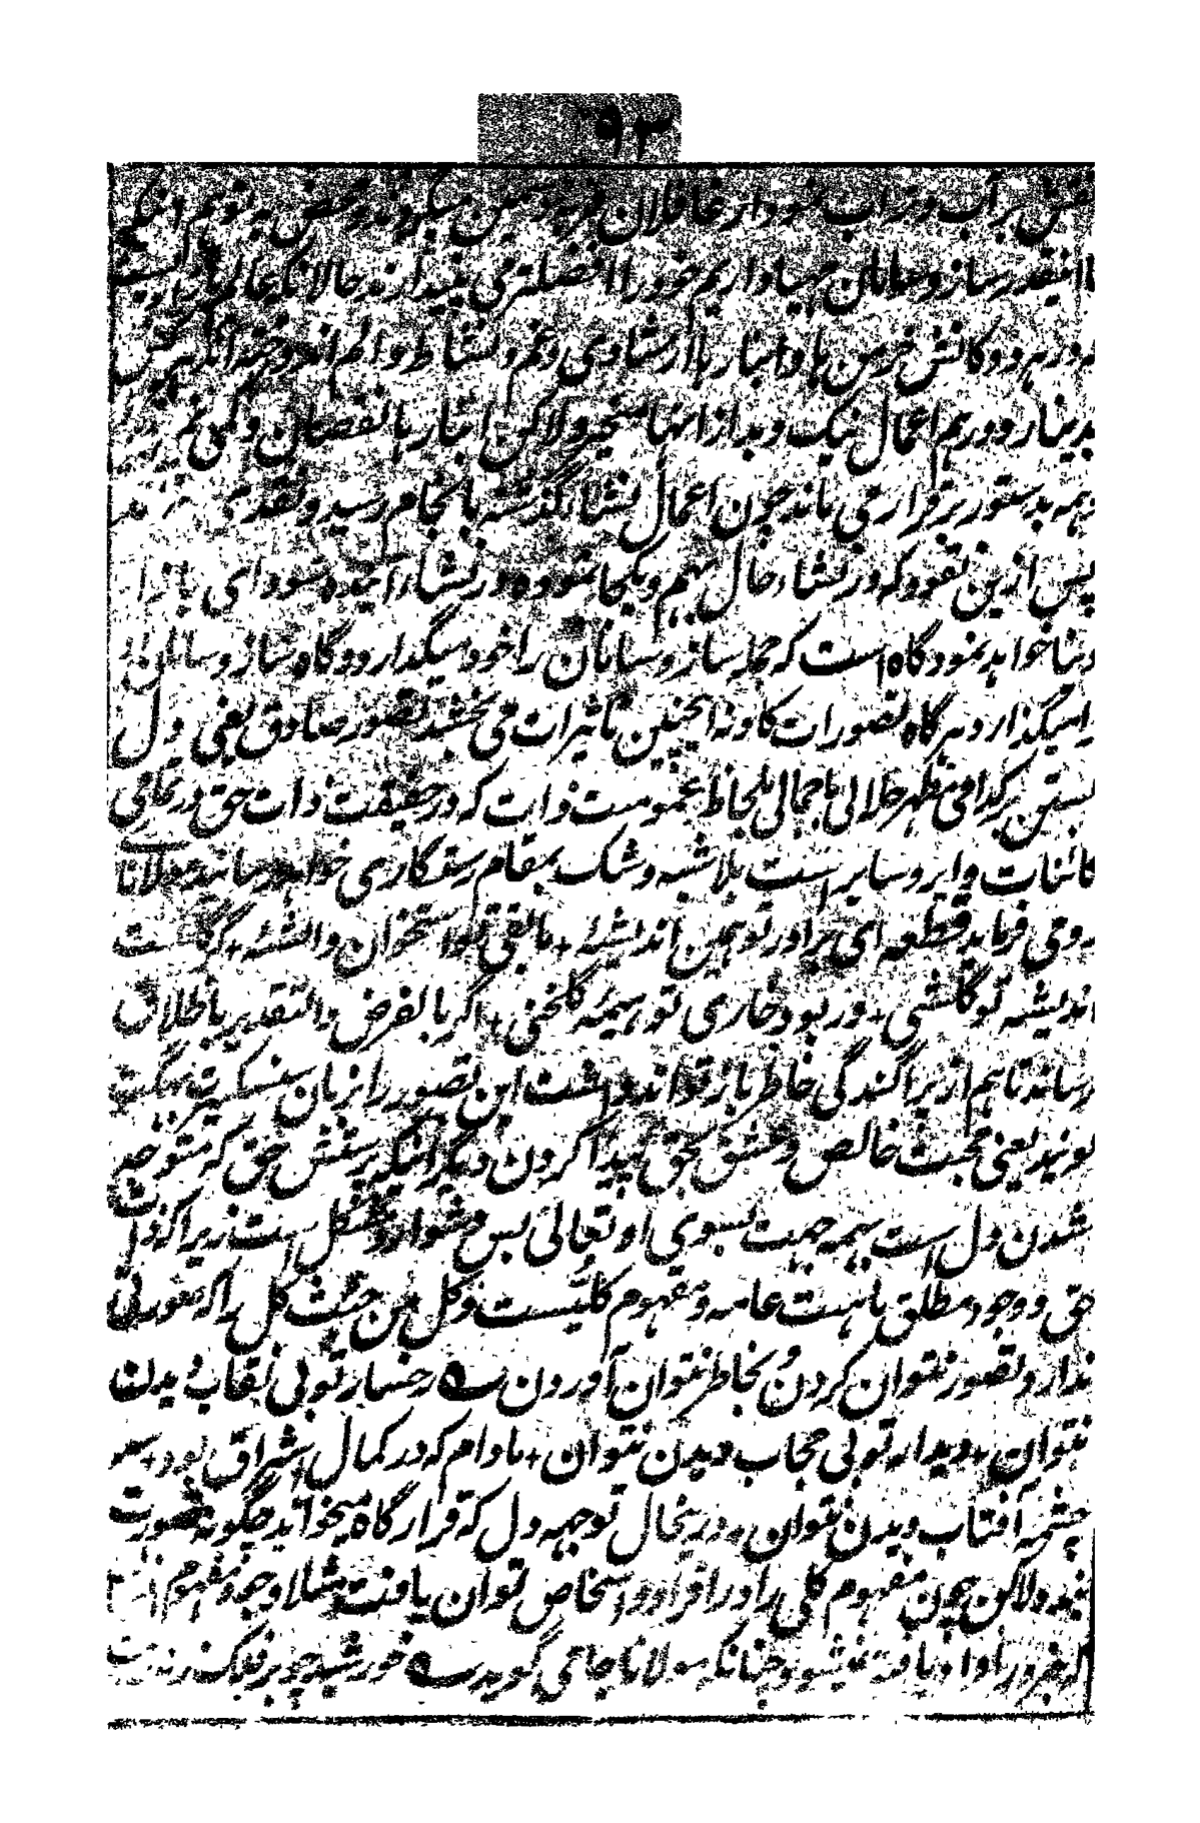 ۹۳
نقش بر آب و تراب نمود از غافلان میگروند و محض به توهم
اینقدر ساز و سامان مهیا داریم خود را افضلتر می پندارند حالانکه عالم
و از شادی و غم و نشاط و الم اندوخته
بدینار و درم اعمال نیک و بد از اینها و لاکن انبار ها نقصان و کمی نم
و همه بدستور برقرار می ماند چون اعمال نشاء گذشته بانجام رسید و نقدی
پس ازین نقود که در نشاء حال بهم و یکجا نموده در نشاء آینده سودای بازار
دنیا خواهد نمود گاه است که جمله ساز و سامان را خود میگذارد و گاه ساز و سامان
را میگذارد هرگاه تصورات کاونه اینچنین تاثیرات می بخشد تصور صادق یعنی دل
بستن بر کدامی مظهر جلالی یا جمالی بلحاظ عمومیت ذات که در حقیقت ذات حق در تمامی
کائنات دایر و سایر است بلا شبه و شک بمقام رستگاری خواهد رسانید مولانا
روم می فرماید قطعه ای برادر تو همین اندیشهٔ + مابقی تو استخوان و ریشهٔ + گر گلست
اندیشه تو گلشنی + ور بود خاری تو هیمهٔ گلخنی + اگر بالفرض والتقدیر باطلاق
رساند تاهم از پراگندگی خاطر باز تواند داشت این تصور را بزبان سنسکریت بهگت
گویند یعنی محبت خالص و عشق بحق پیدا کردن دیگر اینکه پرستش حق که متوجه
شدن دل است بهمه جهت بسوی او تعالی بس دشوار و مشکل است زیرا که ذات
حق و وجود مطلق ماهیت عامه و مفهوم کلیست و کل من حیث کل را که صورتی
ندارد تصور نتوان کردن و بخاطر نتوان آوردن ؎ رخسار تو بی نقاب دیدن
نتوان + دیدار تو بی حجاب دیدن نتوان + مادام که در کمال اشراق بود + سر
چشمه آفتاب دیدن نتوان + درینحال توجهه دل که قرار گاه میخواهد چگونه صورت
بندد ولاکن چون مفهوم کلی را در افراد و اشخاص توان یافت مثلا وجود مفهوم
که بجز در افراد یافته نمیشود چنانکه مولانا جامی گوید ؎ خورشید چو بر فلک زند رایت